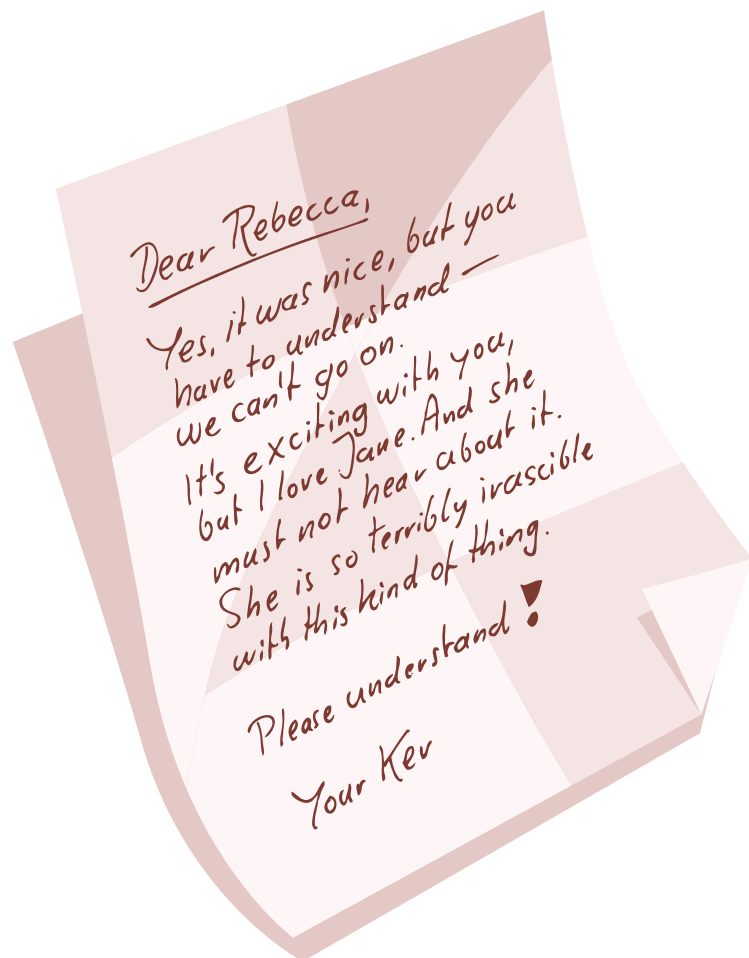 Dear Rebecca,
Yes, it was nice, but you
have to understand —
we can't go on.
It's exciting with you,
but I love Jane. And she
must not hear about it.
She is so terribly irascible
with this kind of thing.
Please understand!
Your Kev